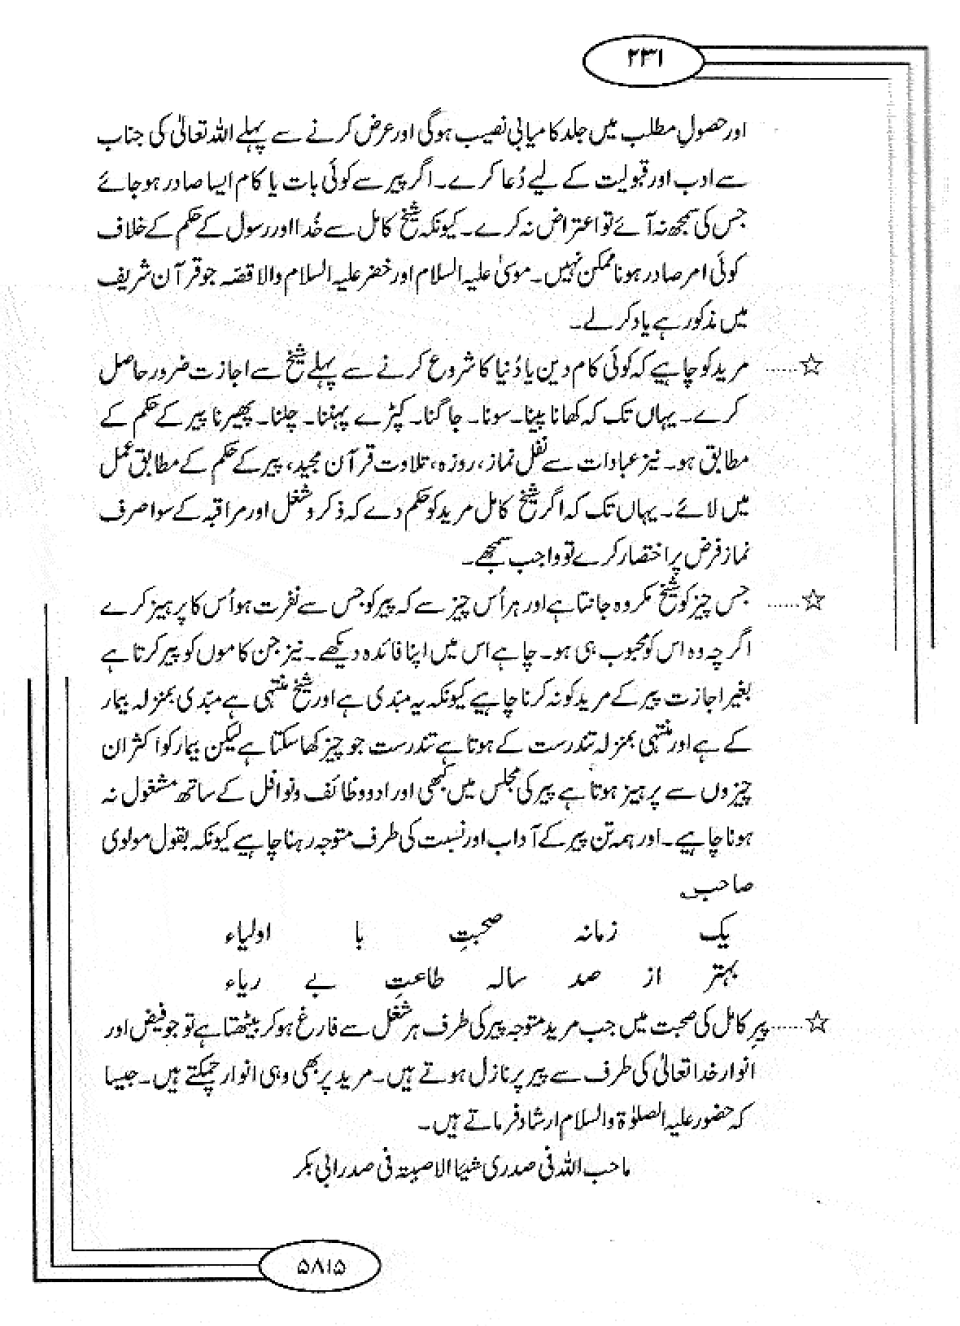 ۲۳۱
اور حصولِ مطلب میں جلد کامیابی نصیب ہوگی اور عرض کرنے سے پہلے اللہ تعالیٰ کی جناب
سے ادب اور قبولیت کے لیے دُعا کرے۔ اگر پیر سے کوئی بات یا کام ایسا صادر ہو جائے
جس کی سمجھ نہ آئے تو اعتراض نہ کرے۔ کیونکہ شیخ کامل سے خُدا اور رسول کے حکم کے خلاف
کوئی امر صادر ہونا ممکن نہیں۔ موسیٰ علیہ السلام اور خضر علیہ السلام والا قصہ جو قرآن شریف
میں مذکور ہے یاد کر لے۔
☆...... مرید کو چاہیے کہ کوئی کام دین یا دُنیا کا شروع کرنے سے پہلے شیخ سے اجازت ضرور حاصل
کرے۔ یہاں تک کہ کھانا پینا۔ سونا۔ جاگنا۔ کپڑے پہننا۔ چلنا۔ پھیرنا پیر کے حکم کے
مطابق ہو۔ نیز عبادات سے نفل نماز، روزہ، تلاوت قرآن مجید، پیر کے حکم کے مطابق عمل
میں لائے۔ یہاں تک کہ اگر شیخ کامل مرید کو حکم دے کہ ذکر و شغل اور مراقبہ کے سوا صرف
نماز فرض پر اختصار کرے تو واجب سمجھے۔
☆...... جس چیز کو شیخ مکروہ جانتا ہے اور ہر اُس چیز سے کہ پیر کو جس سے نفرت ہو اُس کا پرہیز کرے
اگرچہ وہ اس کو محبوب ہی ہو۔ چاہے اس میں اپنا فائدہ دیکھے۔ نیز جن کاموں کو پیر کرتا ہے
بغیر اجازت پیر کے مرید کو نہ کرنا چاہیے کیونکہ یہ مبتدی ہے اور شیخ منتہی ہے مبتدی بمنزلہ بیمار
کے ہے اور منتہی بمنزلہ تندرست کے ہوتا ہے تندرست جو چیز کھا سکتا ہے لیکن بیمار کو اکثر ان
چیزوں سے پرہیز ہوتا ہے پیر کی مجلس میں کبھی اور ادو وظائف و نوافل کے ساتھ مشغول نہ
ہونا چاہیے۔ اور ہمہ تن پیر کے آداب اور نسبت کی طرف متوجہ رہنا چاہیے کیونکہ بقول مولوی
صاحب
یک زمانہ صحبتِ با اولیاء
بہتر از صد سالہ طاعتِ بے ریاء
☆...... پیر کامل کی صحبت میں جب مرید متوجہ پیر کی طرف ہر شغل سے فارغ ہو کر بیٹھتا ہے تو جو فیض اور
انوار خدا تعالیٰ کی طرف سے پیر پر نازل ہوتے ہیں۔ مرید پر بھی وہی انوار چمکتے ہیں۔ جیسا
کہ حضور علیہ الصلوٰۃ والسلام ارشاد فرماتے ہیں۔
ماحب اللہ فی صدری شیئا الاصبتہ فی صدر ابی بکر
۵۸۱۵